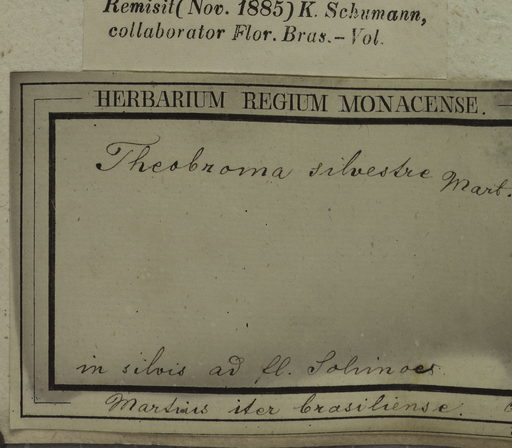 Remisit (Nov. 1885) K. Schumann,
collaborator Flor. Bras. - Vol.
HERBARIUM REGIUM MONACENSE.
Theobroma silvestre Mart.
in silvis ad fl. Solimoes
Martius iter brasiliense.